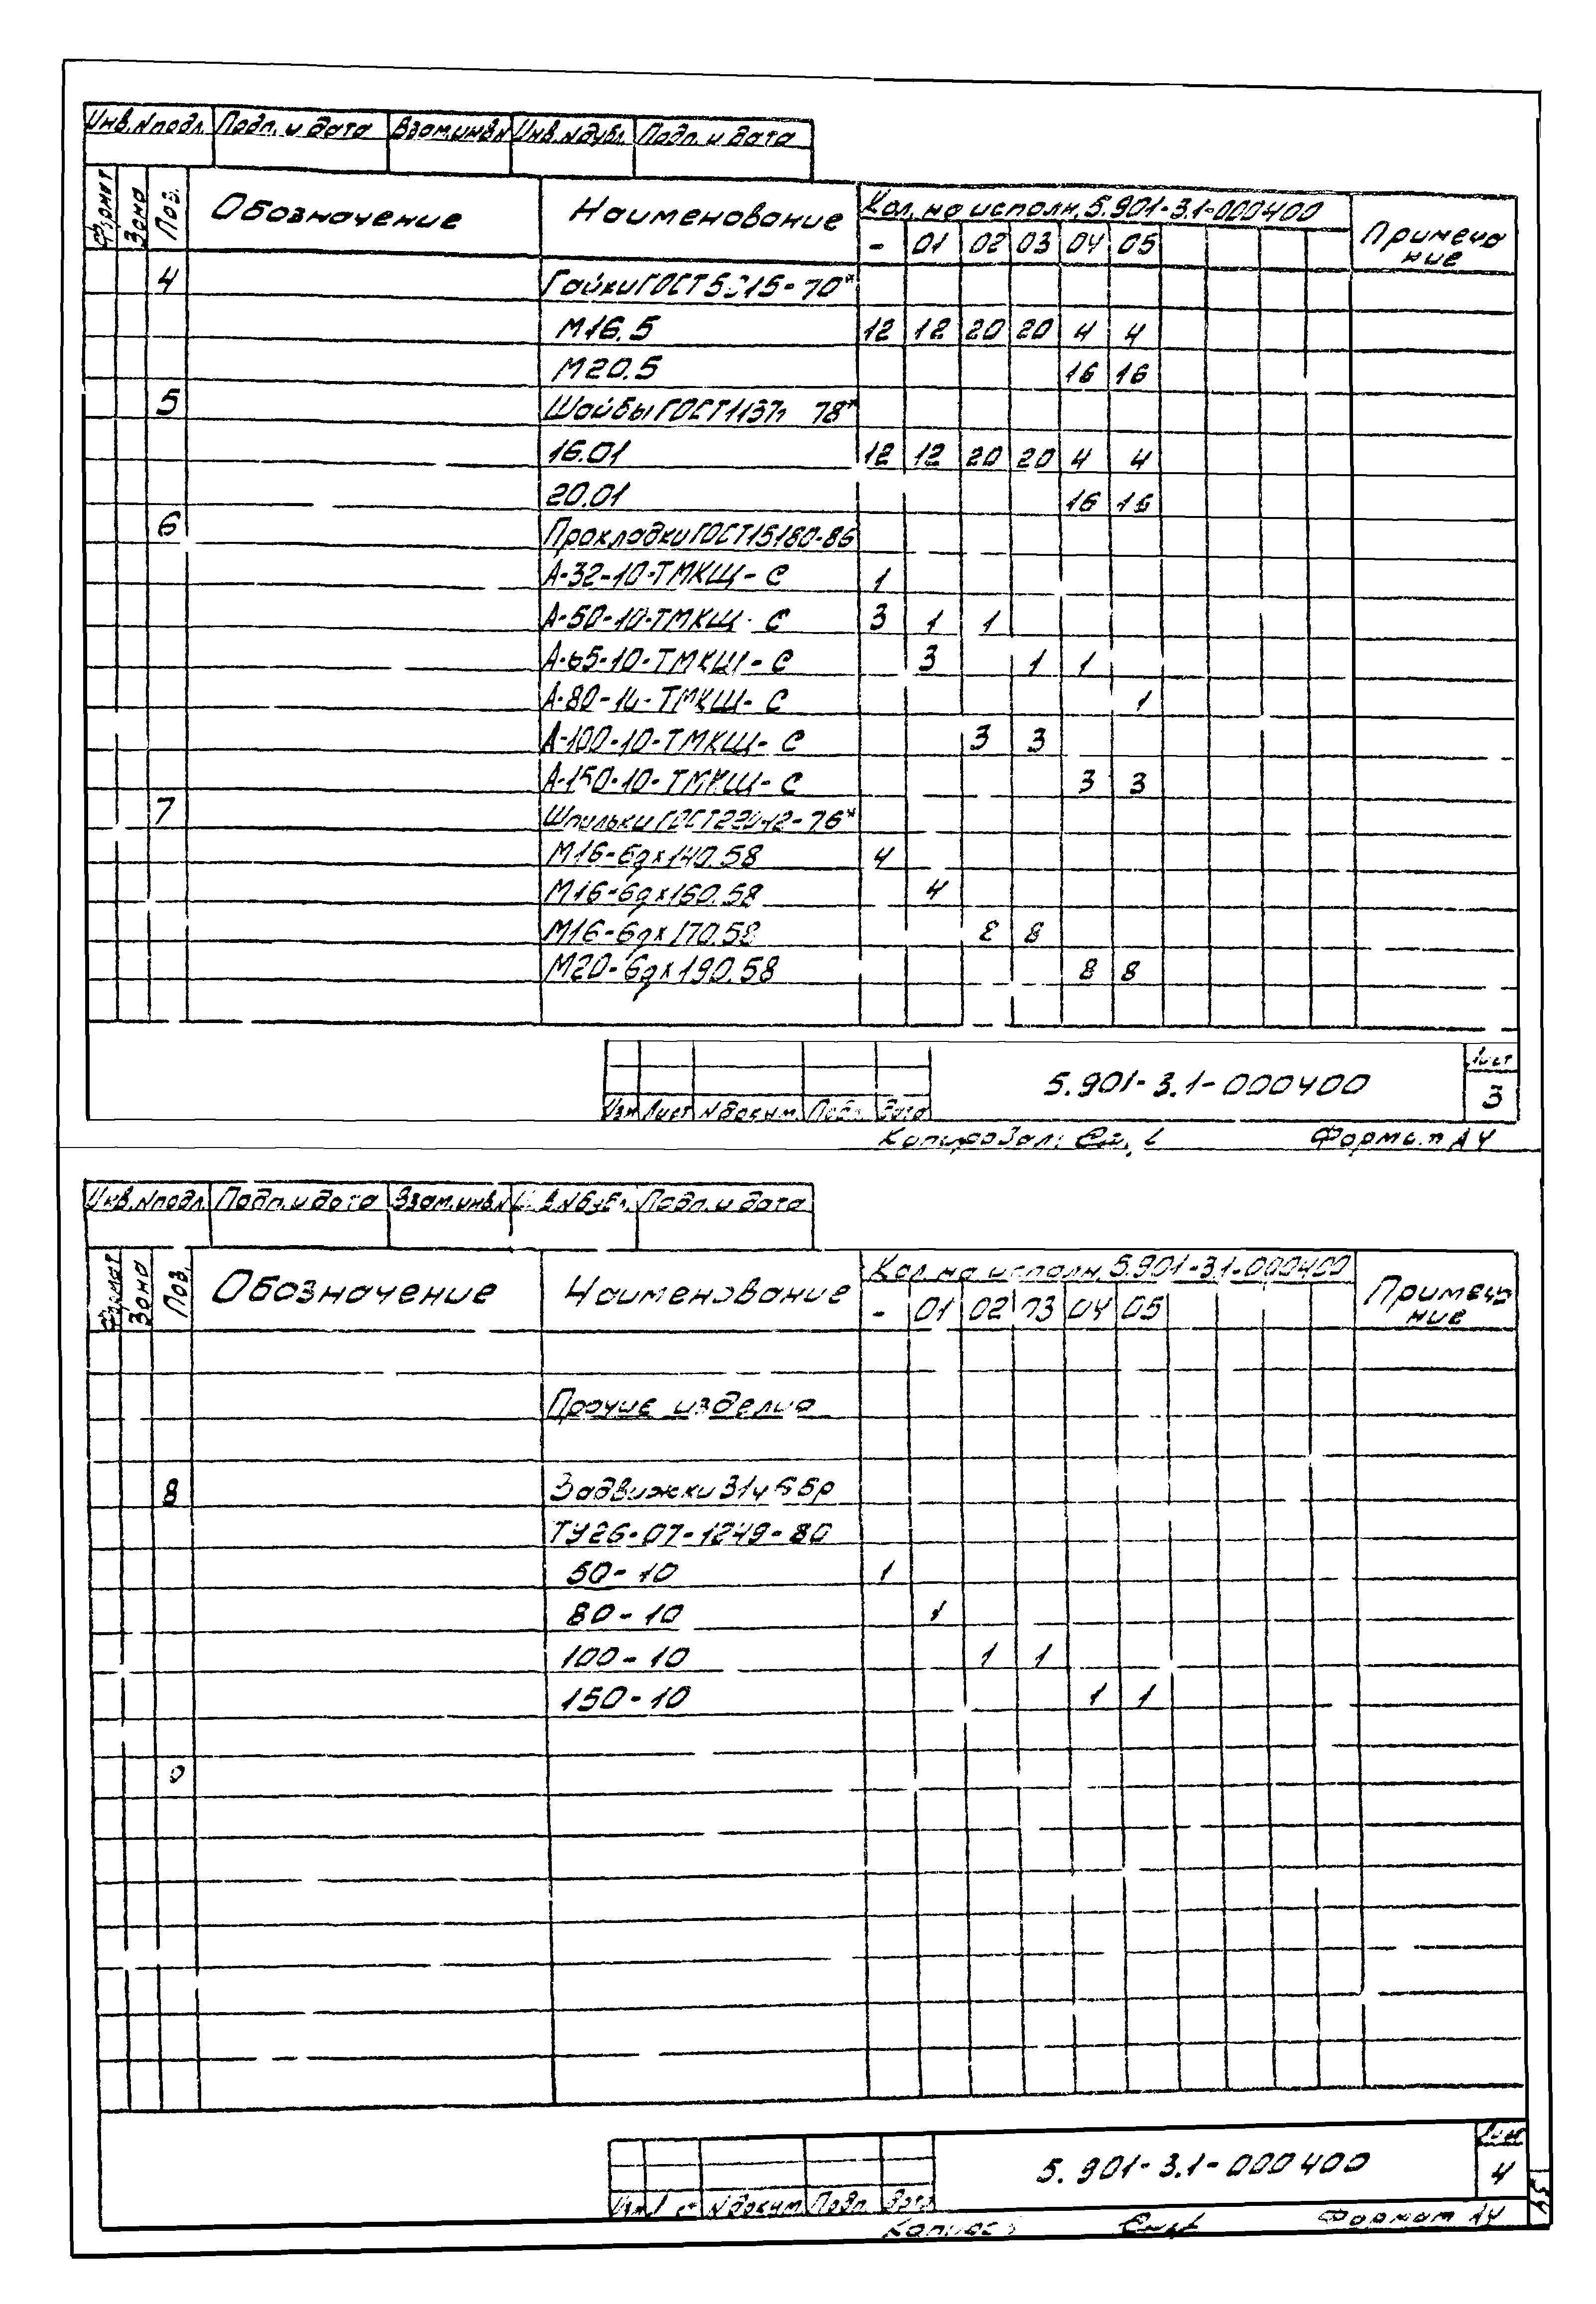 Инв.№подл. Подп. и дата Взам.инв.№ Инв.№дубл. Подп. и дата
Формат Зона Поз. Обозначение Наименование Кол. на исполн. 5.901-3.1-000400 Примеча
ние
- 01 02 03 04 05
4 Гайки ГОСТ 5915-70*
М16.5 12 12 20 20 4 4
М20.5 16 16
5 Шайбы ГОСТ 78*
16.01 12 12 20 20 4 4
20.01 16 16
6 Прокладки ГОСТ 15180-86
А-32-10-ТМКЩ-С 1
А-50-10-ТМКЩ-С 3 1 1
А-65-10-ТМКЩ-С 3 1 1
А-80-10-ТМКЩ-С 1
А-100-10-ТМКЩ-С 3 3
А-150-10-ТМКЩ-С 3 3
7 Шпильки ГОСТ 22042-76*
М16-6gх140.58 4
М16-6gх160.58 4
М16-6gх170.58 8 8
М20-6gх190.58 8 8
5.901-3.1-000400 Лист
3
Изм Лист № докум. Подп. Дата
Копировал: Формат А4
Инв.№подл. Подп. и дата Взам.инв.№ Подп. и дата
Формат Зона Поз. Обозначение Наименование Кол. на исполн. 5.901-3.1-000400 Примеча
ние
- 01 02 03 04 05
Прочие изделия
8 Задвижки 31ч6бр
ТУ26-07-1249-80
50-10 1
80-10 1
100-10 1 1
150-10 1 1
5.901-3.1-000400 Лист
4
Изм № докум. Подп. Дата
Формат А4